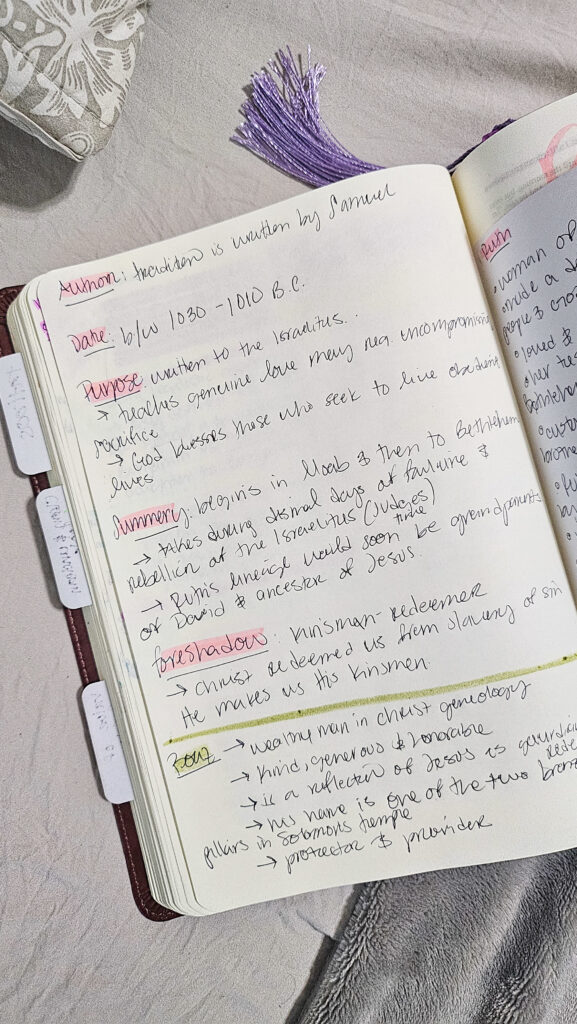 Author: tradition is written by Samuel
Date: b/w 1030 - 1010 B.C.
Purpose: written to the Israelites.
→ teaches genuine love may req. uncompromising
sacrifice
→ God blesses those who seek to live obedient
lives
Summery: begins in Moab & then to Bethlehem
→ takes during dismal days of famine &
rebellion of the Israelites (Judges)
time
→ Ruth's lineage would soon be
of David & ancestor of Jesus.
foreshadow: kinsman-redeemer
→ Christ redeemed us from slavery of sin
He makes us His kinsmen.
Boaz → wealthy man in Christ geneology
→ kind, generous & honorable
→ is a reflection of Jesus as
→ his name is one of the two bronze
pillars in Solomons temple
→ protector & provider
Ruth
woman of
people &
loved &
her
Bethlehem